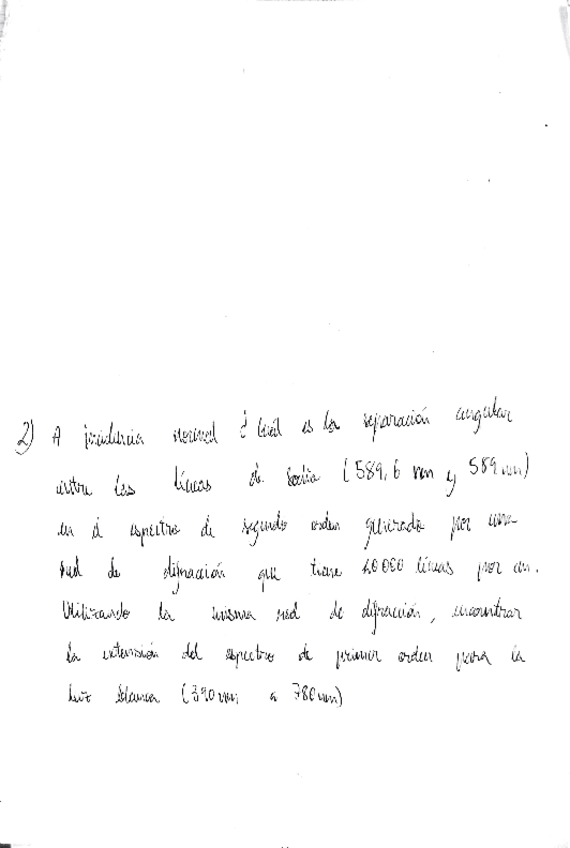 2) A incidencia normal ¿ Cuál es la separación angular
entre las líneas de Sodio (589,6 nm y 589 nm)
en el espectro de segundo orden generado por una
red de difracción que tiene 10 000 líneas por cm.
Utilizando la misma red de difracción, encontrar
la extensión del espectro de primer orden para la
luz blanca (390 nm a 780 nm)